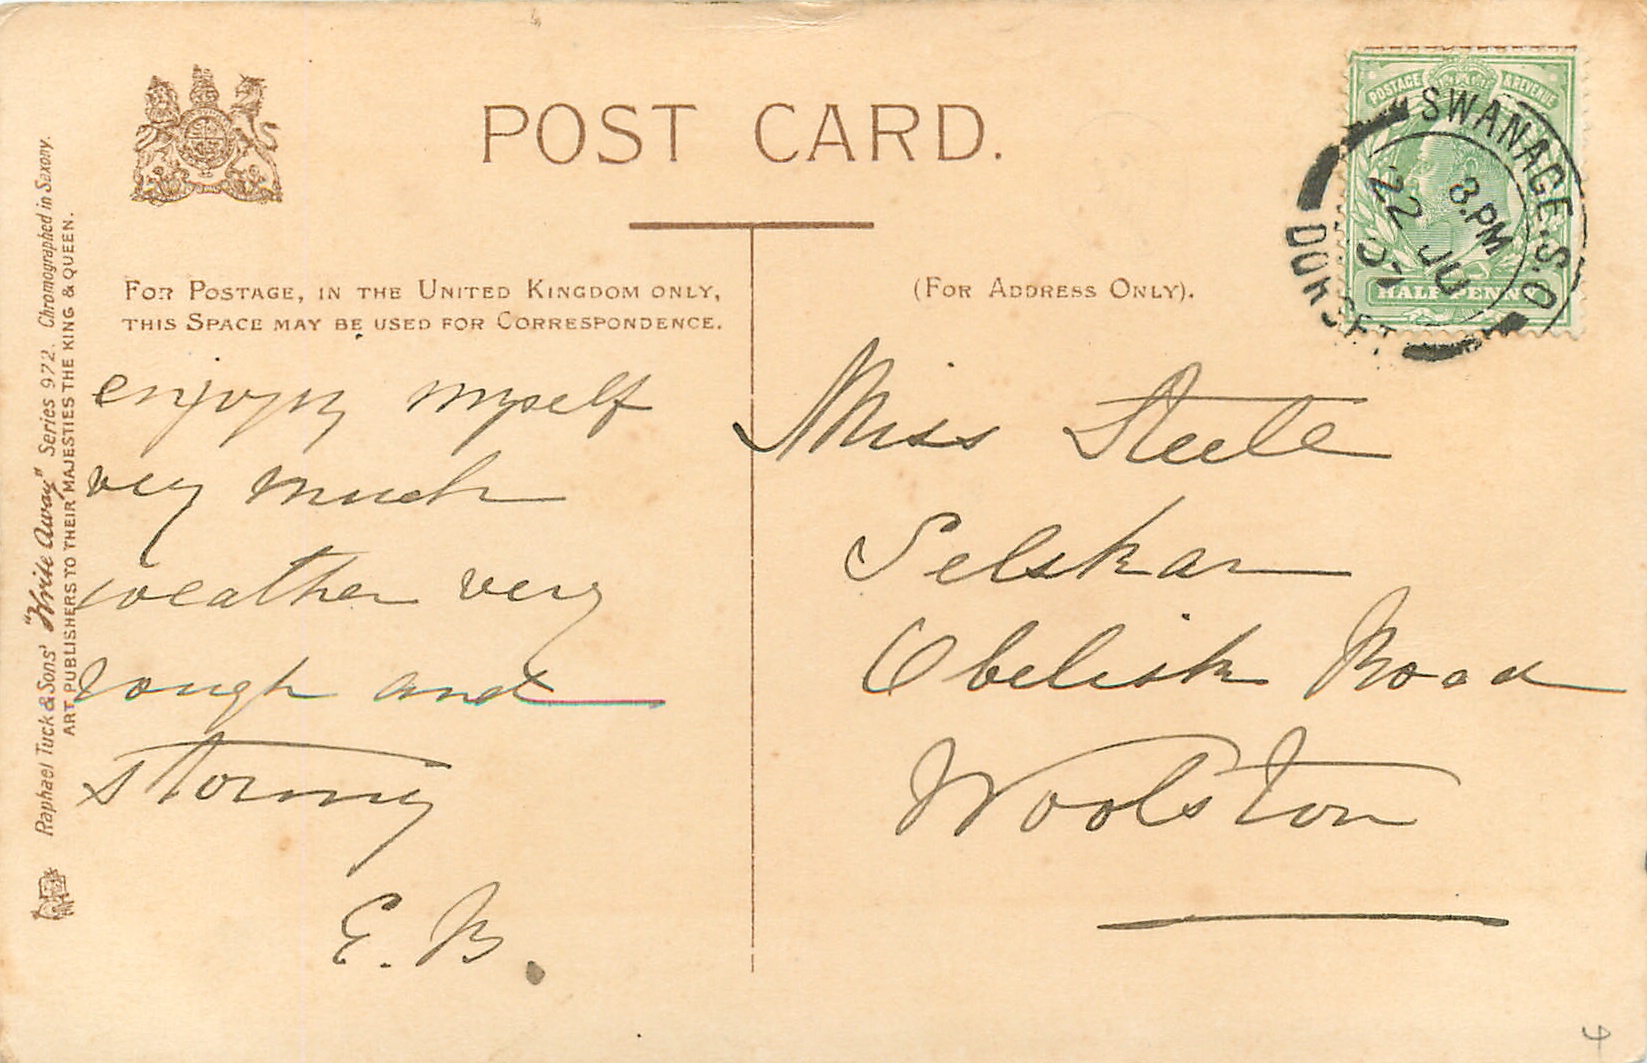 POST CARD.
FOR POSTAGE, IN THE UNITED KINGDOM ONLY,
THIS SPACE MAY BE USED FOR CORRESPONDENCE.
(FOR ADDRESS ONLY).
POSTAGE & REVENUE
HALFPENNY
SWANAGE. S.O
3.PM
22 JU
07
DORSET
Raphael Tuck & Sons' "Write Away" Series 972. Chromographed in Saxony.
ART PUBLISHERS TO THEIR MAJESTIES THE KING & QUEEN.
enjoying myself
very much
weather very
rough and
stormy
E. B.
Miss Steele
Selskar
Obelisk Road
Woolston
4